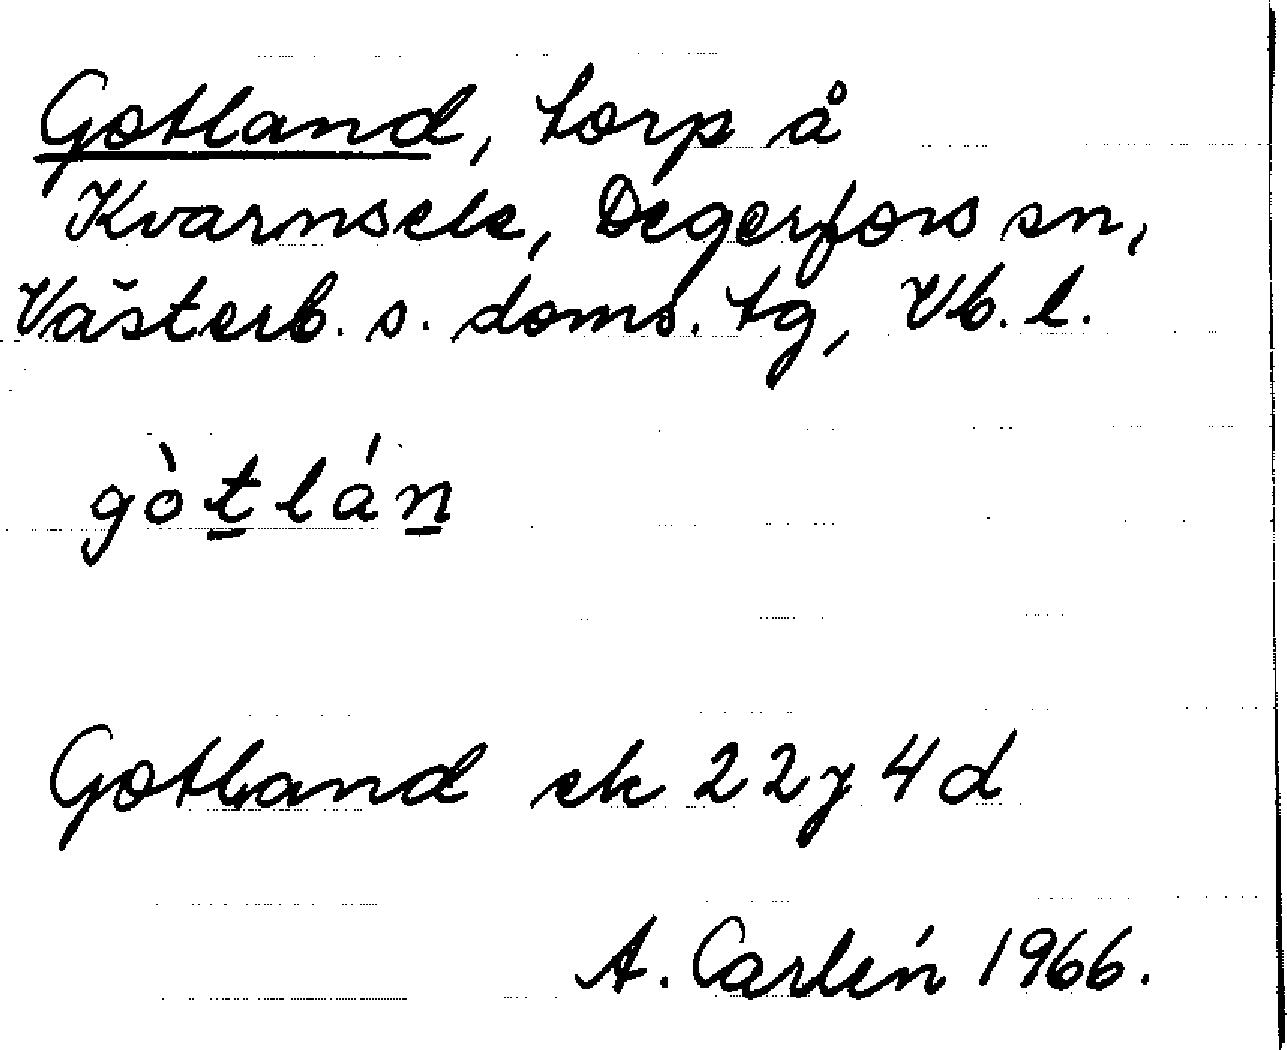 Gotland, torp å
Kvarnsele, Degerfors sn,
Västerb. s. doms. tg, Vb. l.
gòt̲lán̲
Gotland ek 22y 4d
A. Carlén 1966.